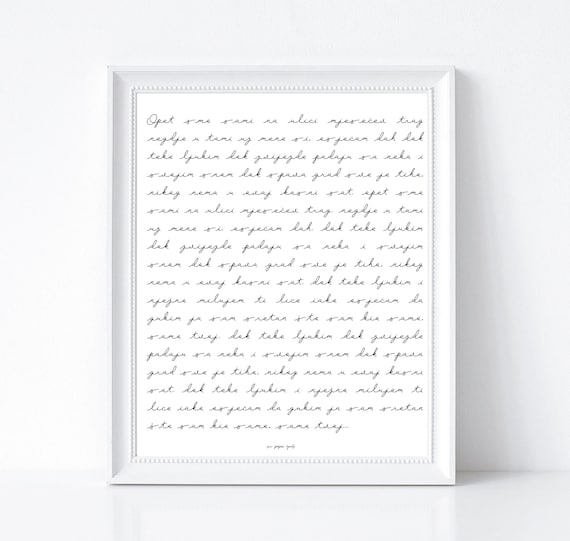 Opet smo sami na ulici mjesečev trag
negdje u tami uz mene si, osjećam dah dok
tebe ljubim dok zvijezde padaju sa neba i
svojim snom dok spava grad sve je tiho,
nikog nema u ovaj kasni sat opet smo
sami na ulici mjesečev trag negdje u tami
uz mene si, osjećam dah dok tebe ljubim
dok zvijezde padaju sa neba i svojim
snom dok spava grad sve je tiho, nikog
nema u ovaj kasni sat dok tebe ljubim i
nježno milujem ti lice iako osjećam da
gubim ja sam sretan što sam bio samo,
samo tvoj dok tebe ljubim dok zvijezde
padaju sa neba i svojim snom dok spava
grad sve je tiho, nikog nema u ovaj kasni
sat dok tebe ljubim i nježno milujem ti
lice iako osjećam da gubim ja sam sretan
što sam bio samo, samo tvoj...